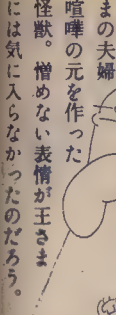 まの夫婦
喧嘩の元を作った
怪獣。憎めない表情が王さま
には気に入らなかったのだろう。